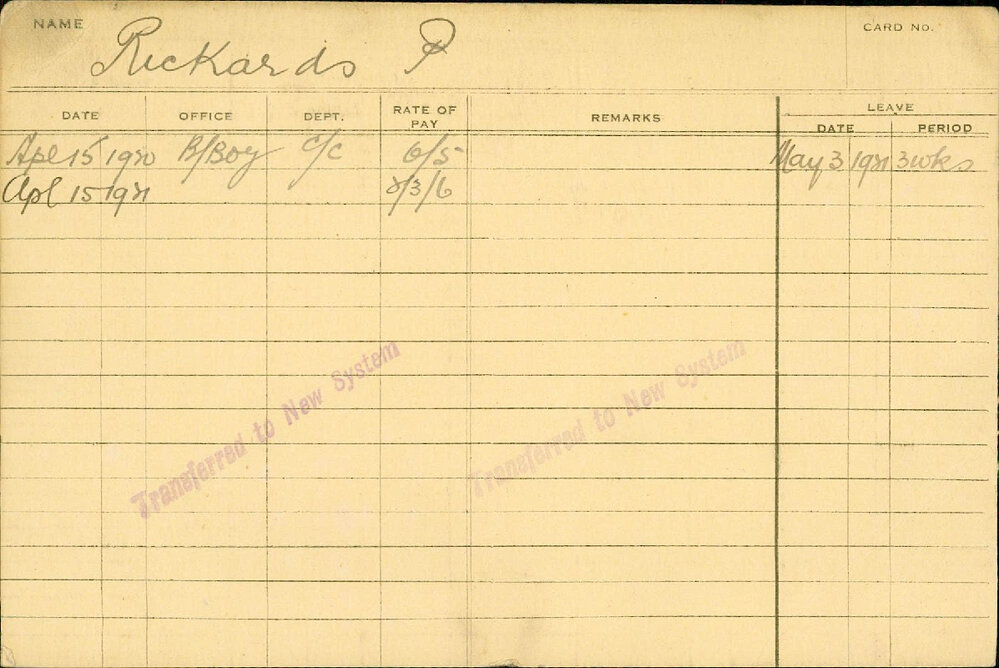 NAME Rickards P CARD No.
LEAVE
DATE OFFICE DEPT. RATE OF PAY REMARKS DATE PERIOD
Apl 15 1920 B/Boy C/C 6/5 May 3 1921 3 wks
Apl 15 1921 8/3/6
Transferred to New System
Transferred to New System